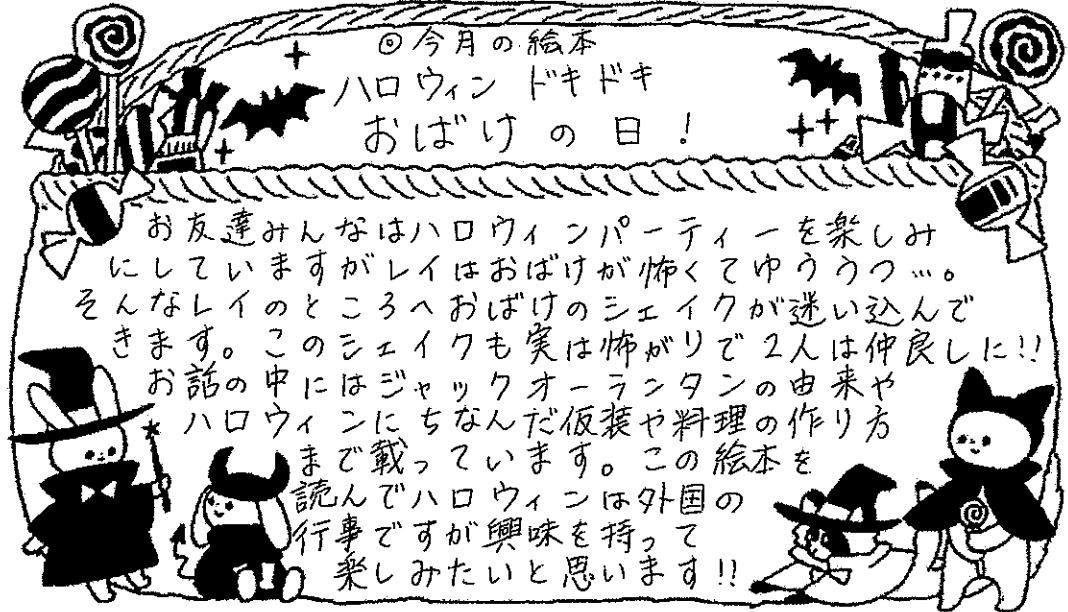 ◎今月の絵本
ハロウィン ドキドキ
おばけの日！
お友達みんなはハロウィンパーティーを楽しみ
にしていますがレイはおばけが怖くてゆううつ…。
そんなレイのところへおばけのシェイクが迷い込んで
きます。このシェイクも実は怖がりで2人は仲良しに!!
お話の中にはジャックオーランタンの由来や
ハロウィンにちなんだ仮装や料理の作り方
まで載っています。この絵本を
読んでハロウィンは外国の
行事ですが興味を持って
楽しみたいと思います!!